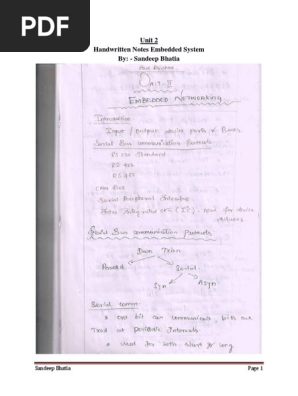 PDF
Unit 2
Handwritten Notes Embedded System
By: - Sandeep Bhatia
Unit-II
EMBEDDED NETWORKING
Introduction
Input / Output device ports & Buses
Serial Bus communication protocols
RS 232 Standard
RS 422
RS 485
CAN Bus
Serial Peripheral Interface
Inter Integrated (I²C) - need for device
Serial Bus communication protocols
Data
Parallel Serial
Syn Asyn
Serial comm
One bit can communicate, bits are
at periodic Intervals
Used for both short & long
Sandeep Bhatia Page 1